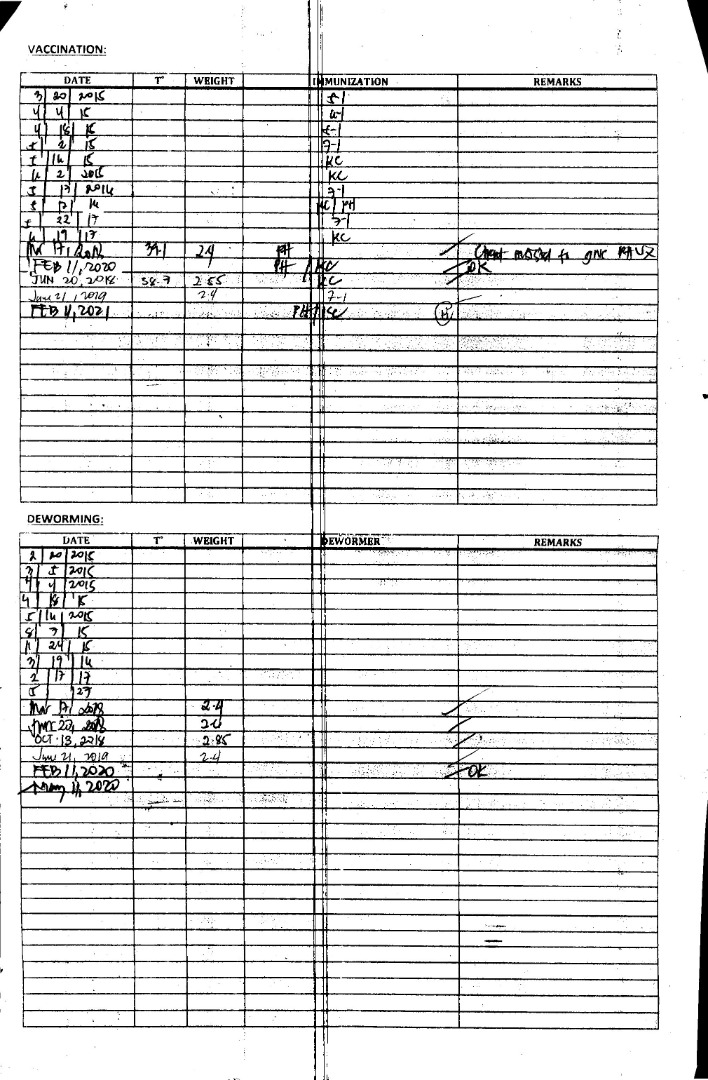 VACCINATION:
DATE T° WEIGHT IMMUNIZATION REMARKS
3 20 2015
4 4 15
4 18 15
5 2 15 7-1
5 16 15 KC
2 2015 KC
5 17 2016 7-1
5 17 16 KC PH
5 22 17 7-1
19 17 KC
Mar 17, 2018 39.1 2.4 PH Client to give VX
FEB 11, 2020 PH / KC OK
JUN 20, 2018 38.7 2.85 KC
June 21, 2019 2.4 7-1
FEB 11, 2021 PH / KC H
DEWORMING:
DATE T° WEIGHT DEWORMER REMARKS
2 20 2015
3 5 2015
4 4 2015
4 18 15
5 16 2015
8 7 15
11 24 15
3 19 16
2 17 17
5 27
Mar 17, 2018 2.4
June 20, 2018
OCT. 13, 2018 2.85
June 21, 2019 2.4
FEB 11, 2020 OK
11, 2020